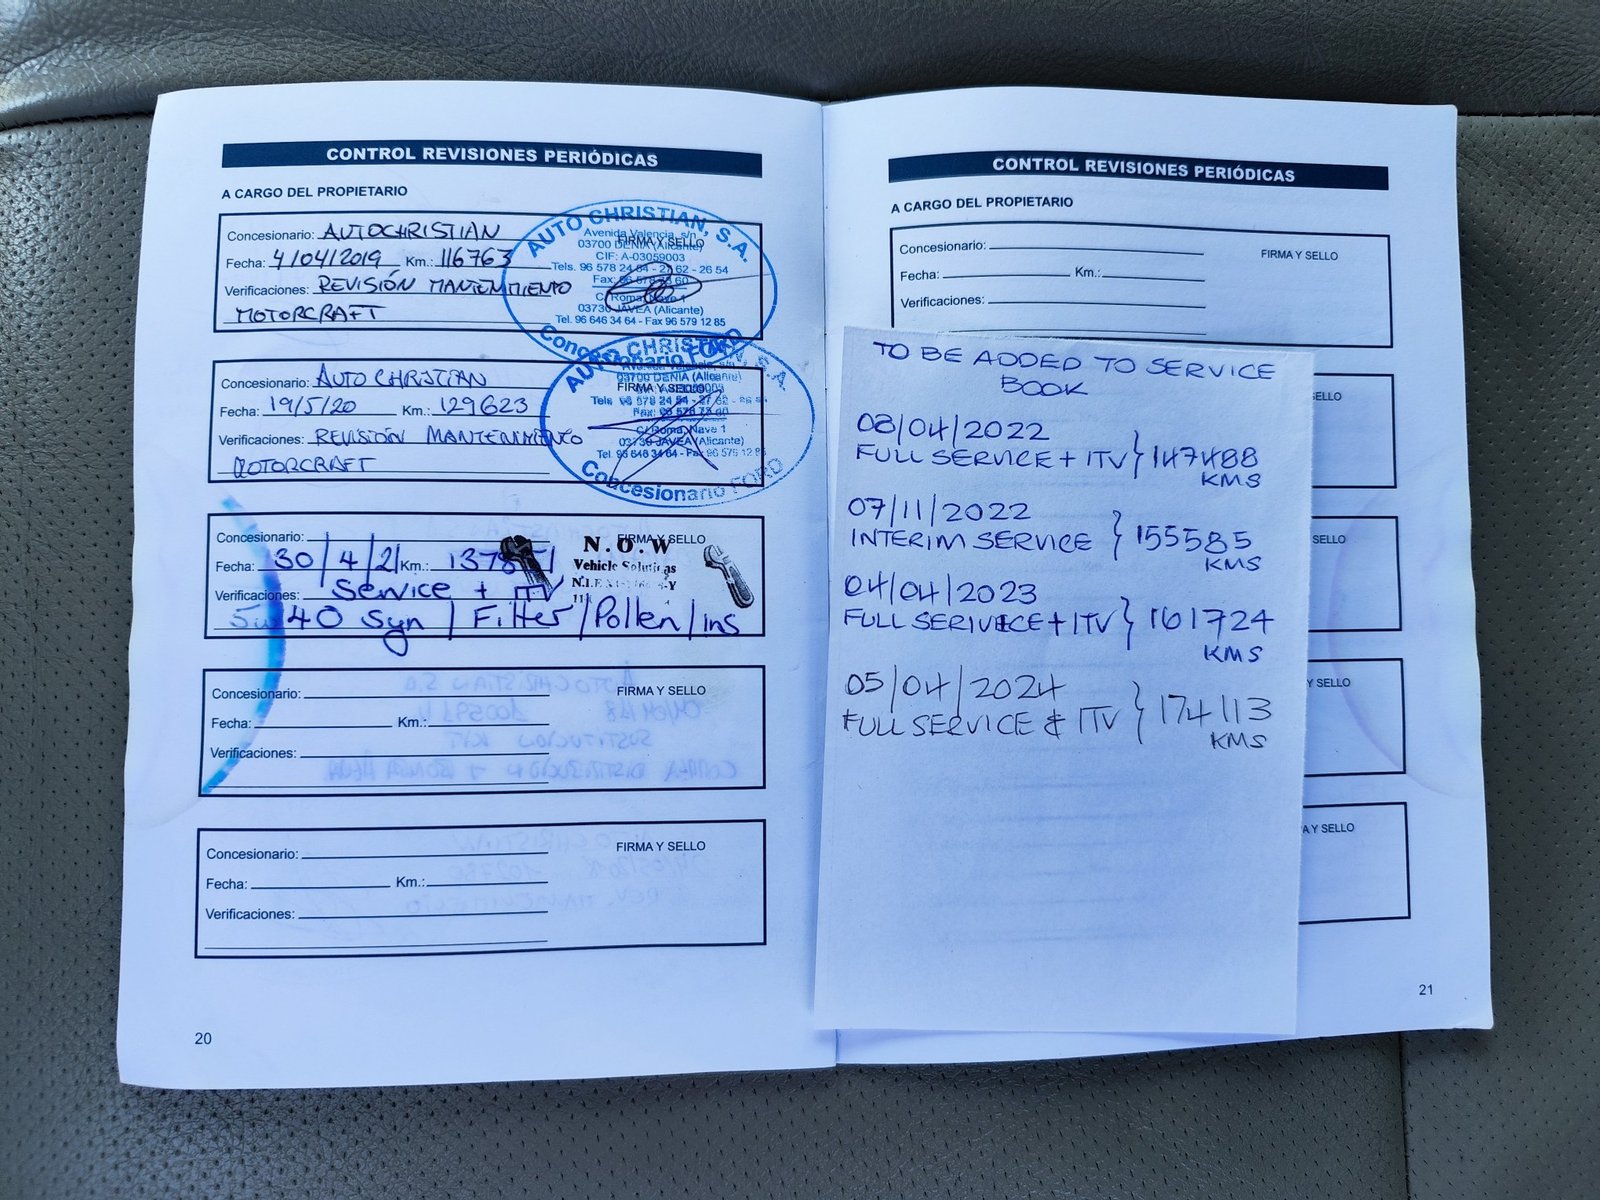 CONTROL REVISIONES PERIÓDICAS
A CARGO DEL PROPIETARIO
Concesionario: AUTOCHRISTIAN
FIRMA Y SELLO
Fecha: 4/04/2019 Km.: 116763
Verificaciones: REVISIÓN MANTENIMIENTO
MOTORCRAFT
AUTO CHRISTIAN, S.A.
Avenida Valencia, s/n
03700 DENIA (Alicante)
CIF: A-03059003
Tels. 96 578 24 54 - 27 62 - 26 54
Fax: 96 578 75 60
C/ Roma, Nave 1
03730 JAVEA (Alicante)
Tel. 96 646 34 64 - Fax 96 579 12 85
Concesionario FORD
Concesionario: AUTO CHRISTIAN
FIRMA Y SELLO
Fecha: 19/5/20 Km.: 129623
Verificaciones: REVISIÓN MANTENIMIENTO
MOTORCRAFT
AUTO CHRISTIAN, S.A.
03700 DENIA (Alicante)
C/ Roma, Nave 1
03730 JAVEA (Alicante)
Tel. 96 646 34 64 - Fax 96 579 12 85
Concesionario FORD
Concesionario:
FIRMA Y SELLO
Fecha: 30/4/21 Km.:
Verificaciones: Service + ITV
5w/40 Syn / Filter / Pollen / ins
N.O.W
Vehicle Solutions
Concesionario:
FIRMA Y SELLO
Fecha: Km.:
Verificaciones:
Concesionario:
FIRMA Y SELLO
Fecha: Km.:
Verificaciones:
20
CONTROL REVISIONES PERIÓDICAS
A CARGO DEL PROPIETARIO
Concesionario:
FIRMA Y SELLO
Fecha: Km.:
Verificaciones:
TO BE ADDED TO SERVICE
BOOK
08/04/2022
FULL SERVICE + ITV } 147488
KMS
07/11/2022
INTERIM SERVICE } 155585
KMS
04/04/2023
FULL SERIVECE + ITV } 161724
KMS
05/04/2024
FULL SERVICE & ITV } 174113
KMS
SELLO
SELLO
Y SELLO
A Y SELLO
21